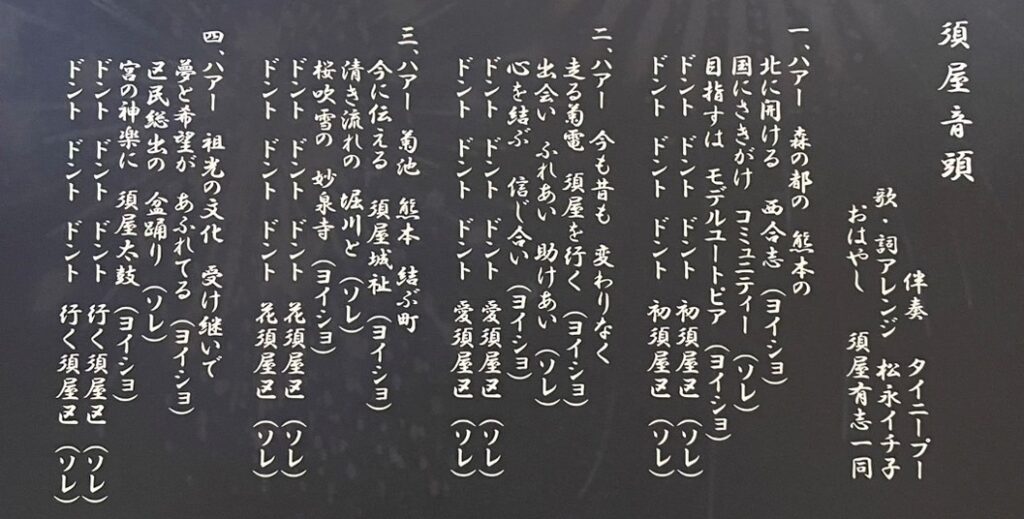 須屋音頭
伴奏　タイニープー
歌・詞アレンジ　松永イチ子
おはやし　須屋有志一同
一、ハアー　森の都の　熊本の
北に開ける　西合志　（ヨイショ）
国にさきがけ　コミュニティー　（ソレ）
目指すは　モデルユートピア　（ヨイショ）
ドント　ドント　ドント　初須屋区　（ソレ）
ドント　ドント　ドント　初須屋区　（ソレ）
二、ハアー　今も昔も　変わりなく
走る菊電　須屋を行く　（ヨイショ）
出会い　ふれあい　助けあい　（ソレ）
心を結ぶ　信じ合い　（ヨイショ）
ドント　ドント　ドント　愛須屋区　（ソレ）
ドント　ドント　ドント　愛須屋区　（ソレ）
三、ハアー　菊池　熊本　結ぶ町
今に伝える　須屋城祉　（ヨイショ）
清き流れの　堀川と　（ソレ）
桜吹雪の　妙泉寺　（ヨイショ）
ドント　ドント　ドント　花須屋区　（ソレ）
ドント　ドント　ドント　花須屋区　（ソレ）
四、ハアー　祖光の文化　受け継いで
夢と希望が　あふれてる　（ヨイショ）
区民総出の　盆踊り　（ソレ）
宮の神楽に　須屋太鼓　（ヨイショ）
ドント　ドント　ドント　行く須屋区　（ソレ）
ドント　ドント　ドント　行く須屋区　（ソレ）